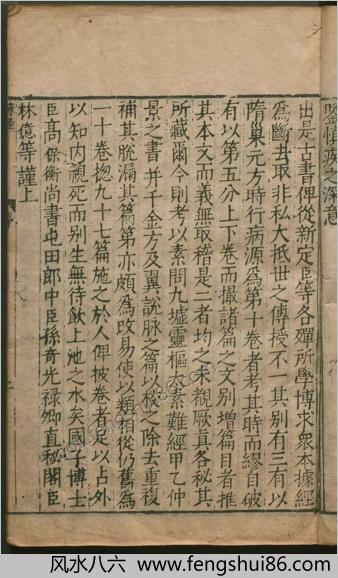 鑒慎疾之深意
出是古書俾從新定臣等各殫所學博求衆本據經
爲斷去取非私大抵世之傳授不一其別有三有以
隋巢元方時行病源爲第十卷者考其時而繆自破
有以第五分上下卷而撮諸篇之文別增篇目者推
其本文而義無取稽是二者均之未覩厥真各秘其
所藏爾今則考以素問九墟靈樞太素難經甲乙仲
景之書并千金方及翼說脉之篇以校之除去重複
補其脫漏其篇第亦頗爲改易使以類相從仍舊爲
一十卷揔九十七篇施之於人俾披卷者足以占外
以知内視死而別生無待飲上池之水矣國子博士
臣高保衡尚書屯田郎中臣孫奇光禄卿直秘閣臣
林億等謹上
风水八六 www.fengshui86.com